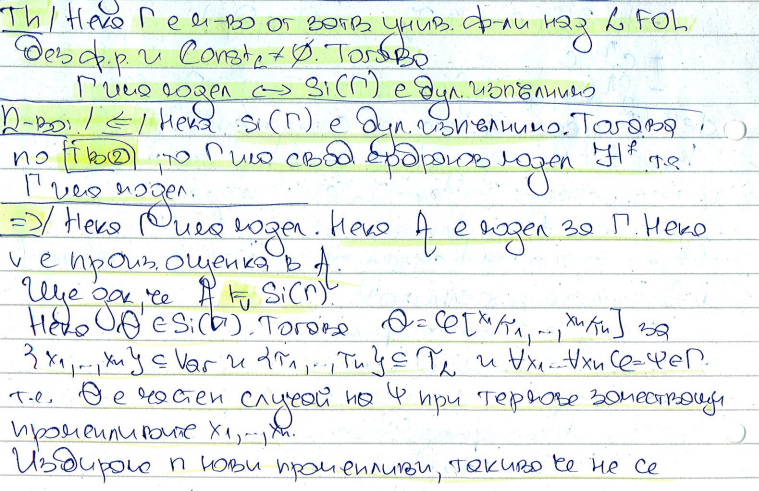 Th/ Нека Γ е м-во от затв. унив. ф-ли над L FOL
без ф.р. и Const_L ≠ ∅. Тогава
Γ има модел ↔ Si(Γ) е бул. изпълнимо
Д-во:/ (⇐)/ Нека Si(Γ) е бул. изпълнимо. Тогава
по Тв②, то Γ има свой ербранов модел т.е.
Γ има модел.
⇒)/ Нека Γ има модел. Нека A е модел за Γ. Нека
v е произ. оценка в A.
Ще док, че A ⊨_v Si(Γ).
Нека θ ∈ Si(Γ). Тогава θ = φ[x₁/τ₁, .., xₙ/τₙ] за
{x₁, .., xₙ} ⊆ Var и {τ₁, .., τₙ} ⊆ T_L и ∀x₁...∀xₙφ = ψ ∈ Γ.
т.е. θ е частен случай на ψ при термове заместващи
променливите x₁, .., xₙ.
Избираме n нови променливи, такива че не се